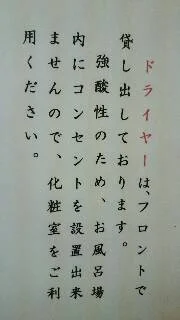 ドライヤーは、フロントで
貸し出しております。
強酸性のため、お風呂場
内にコンセントを設置出来
ませんので、化粧室をご利
用ください。